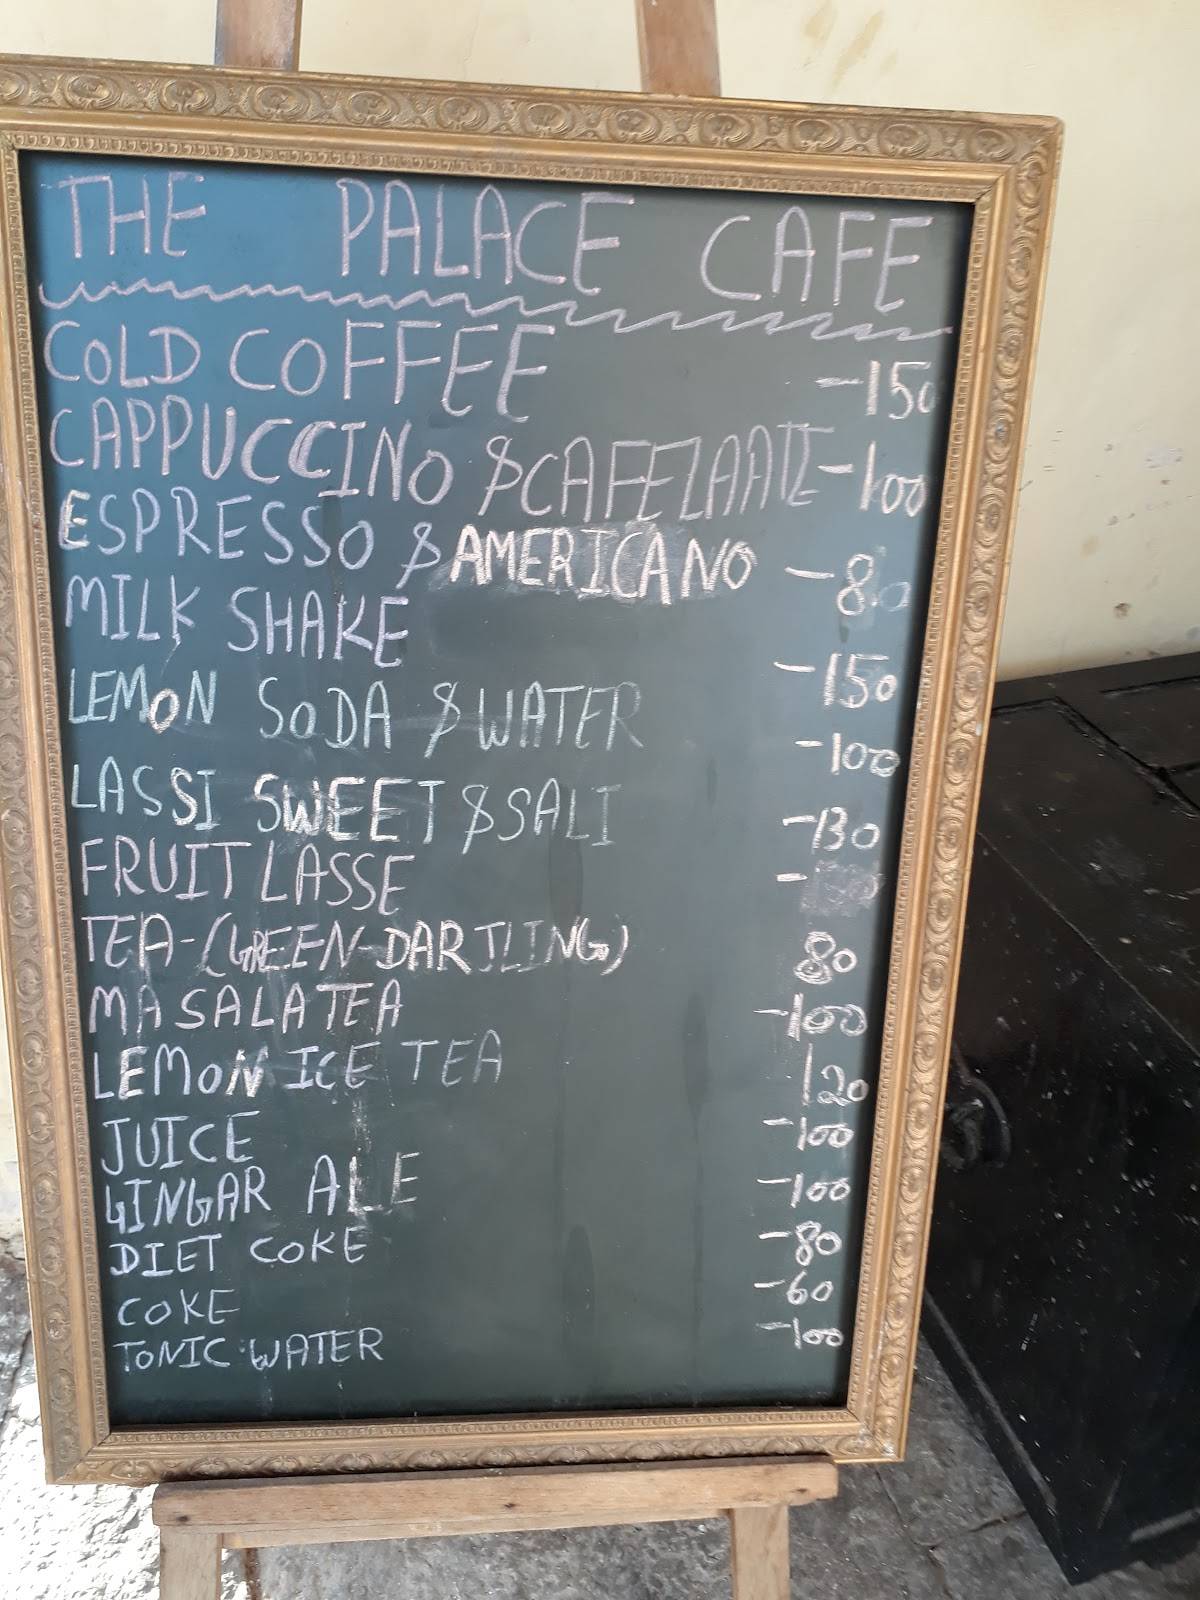 THE PALACE CAFE
COLD COFFEE -150
CAPPUCCINO & CAFELAATE -100
ESPRESSO & AMERICANO -80
MILK SHAKE -150
LEMON SODA & WATER -100
LASSI SWEET & SALT -130
FRUIT LASSE -
TEA-(GREEN-DARJLING) 80
MASALA TEA -100
LEMON ICE TEA 120
JUICE -100
GINGAR ALE -100
DIET COKE -80
COKE -60
TONIC WATER -100